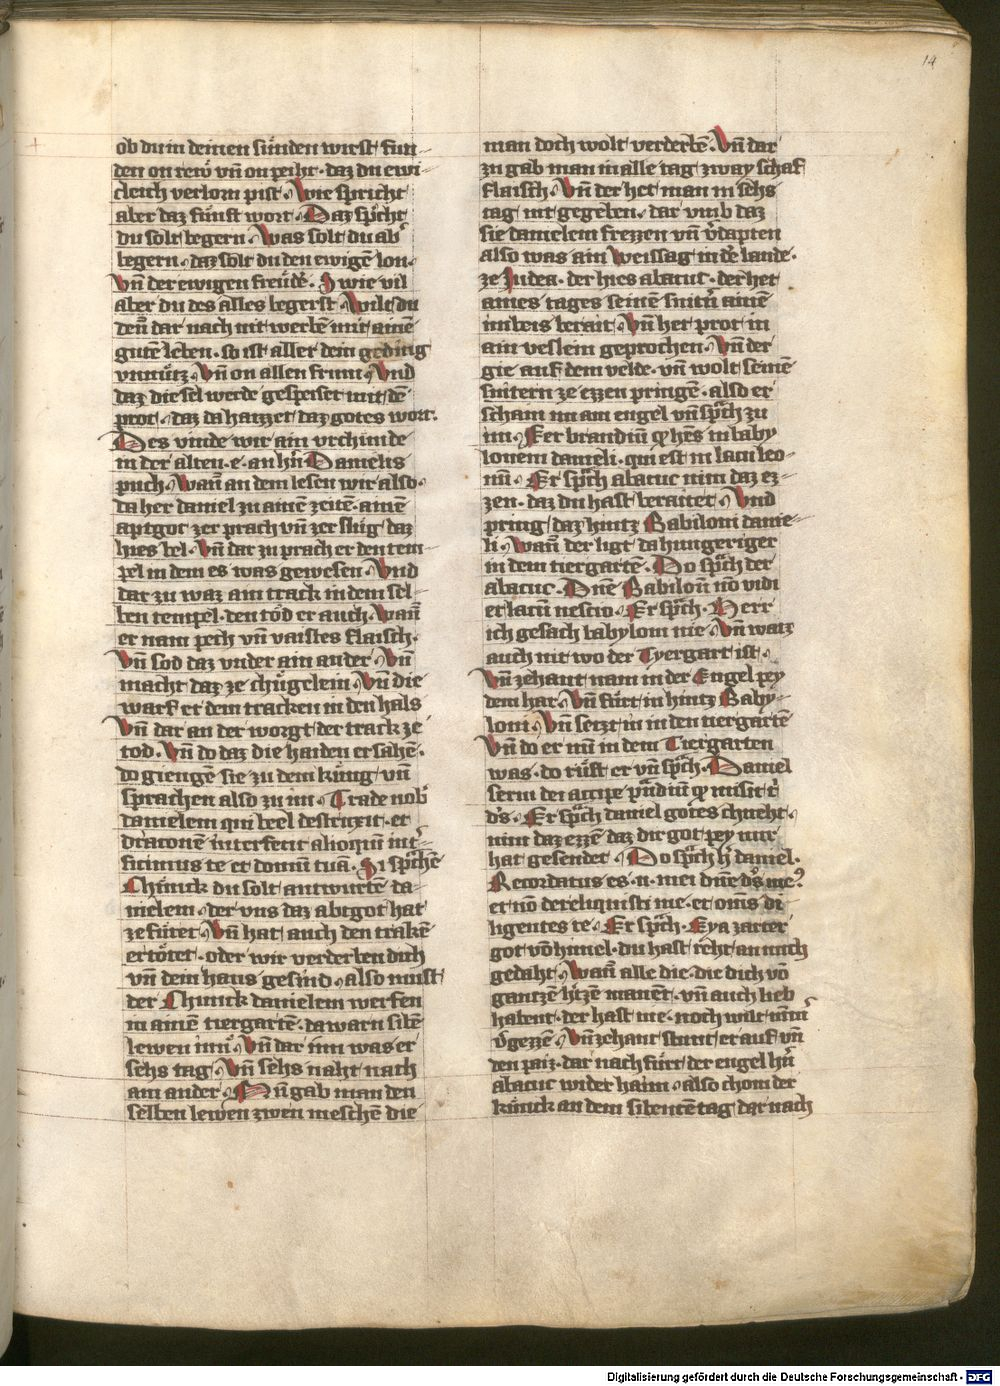 14
ob du in deinen sünden wirst fun-
den on rew vn̄ on peiht · daz du ewi-
cleich verlorn pist · Wie spricht
aber daz fünft wort · Daz sp̄cht
du solt begern · Was solt du ab̓
begern · daz solt du den ewigē lon ·
Vn̄ der ewigen freüdē · Swie vil
aber du des alles begerst · Wilt du
den̄ dar nach nit werbē mit ainē
gutē leben · so ist aller dein geding
vnnütz · Vn̄ on allen frum · Vnd
daz die sel werde gespeiset mit dē
prot · daz da haizzet daz gotes wort ·
Des vinde wir ain vrchunde
in der alten · e · an hn̄ Danielis
puch · Wan̄ an dem lesen wir also ·
da her daniel zu ainē zeitē · ainē
aptgot zer prach vn̄ zer slug daz
hies bel · Vn̄ dar zu prach er den tem-
pel in dem es was gewesen · Vnd
dar zu waz ain track in dem sel-
ben tempel · den töd er auch · Wan̄
er nam pech vn̄ vaistes flaisch ·
Vn̄ sod daz vnder ain ander · Vn̄
macht daz ze chügelein · Vn̄ die
warf er dem tracken in den hals
Vn̄ dar an der worgt der track ze
tod · Vn̄ do daz die haiden ersahē ·
do giengē sie zu dem küng vn̄
sprachen also zu im · Trade nob̓
danielem qui beel destruxit · et
draconē interfecit alioquī int̓-
ficimus te et domū tuā · Si sp̄chē
Chünick du solt antwurtē da-
nielem · der vns daz abtgot hat
ze füret · Vn̄ hat auch den trakē
ertötet · oder wir verderben dich
vn̄ dein haus gesind · also must
der Chünick danielem werfen
in ainē tiergartē · da warn sibē
lewen inn̄ · Vn̄ dar inn was er
sehs tag · Vn̄ sehs naht nach
ain ander · Nu gab man den
selben lewen zwen meschē die
man doch wolt verderbē · Vn̄ dar
zu gab man in alle tag zway schaf
flaisch · Vn̄ der het man in sehs
tag nit gegeben · dar vmb daz
sie danielem frezzen vn̄ v̓dapten
also was ain weissag in dē lande ·
ze Judea · der hies abacuc · der het
aines tages seinē snitn̓ ainē
imbeis berait · Vn̄ het prot in
ain veslein geprochen · Vn̄ der
gie auf dem velde · vn̄ wolt seinē
snitern ze ezzen pringē · also er
schain im ain engel vn̄ sp̄ch zu
im · Fer brandiū q̄ hēs in baby
lonem danieli · qui est in lacu leo-
nū · Er sp̄ch abacuc nim daz ez-
zen · daz du hast beraitet · Vnd
pring daz hintz Babiloni danie-
li · Wan̄ der ligt da hungeriger
in dem tiergartē · Do sp̄ch der
abacuc · Dn̄e Babilon̄ nō vidi
et lacū nescio · Er sp̄ch · Herr
ich gesach babylom nie · Vn̄ waiz
auch nit wo der Tyergart ist ·
Vn̄ zehant nam in der Engel pey
dem har · Vn̄ fürt in hintz Baby-
loni · Vn̄ setzt in in den tiergartē
Vn̄ do er nū in dem Tiergarten
was · do rüft er vn̄ sp̄ch · Daniel
serui dei accipe p̄ndiū q̄ misit t̓
d̄s · Er sp̄ch daniel gotes chneht ·
nim daz ezzē daz dir got pey mir
hat gesendet · Do sp̄ch h̓ daniel ·
Recordatus es · n · mei dn̄e d̄s meꝰ
et nō dereliquisti me · et om̄s di
ligentes te · Er sp̄ch · Eya zarter
got vō himel · du hast reht an mich
gedaht · Wan̄ alle die · die dich vō
gantzē h̓tzē mainēt · vn̄ auch lieb
habent · der hast nie · noch wilt nim̄
v̓gezzē · Vn̄ zehant stunt er auf vn̄
den paiz · dar nach fürt der engel hn̄
abacuc wider haim · also chom der
künick an dem sibentē tag dar nach
Digitalisierung gefördert durch die Deutsche Forschungsgemeinschaft - DFG